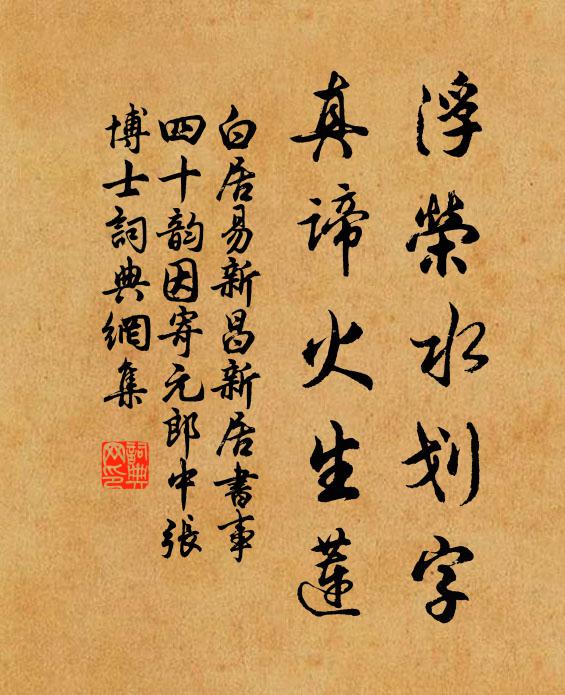 浮榮水划字
真諦火生蓮
白居易新昌新居書事
四十韵因寄元郎中張
博士詞典網集
詞典
网印